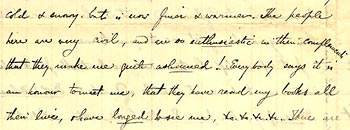 cold & snowy. but is now finer & warmer. The people
here are very civil, and are so enthusiastic in their compliments
that they make me quite ashamed! Everybody says it is
an honour to meet me, that they have read my books all
their lives, & have longed to see me, &c. &c. &c. &c. There are